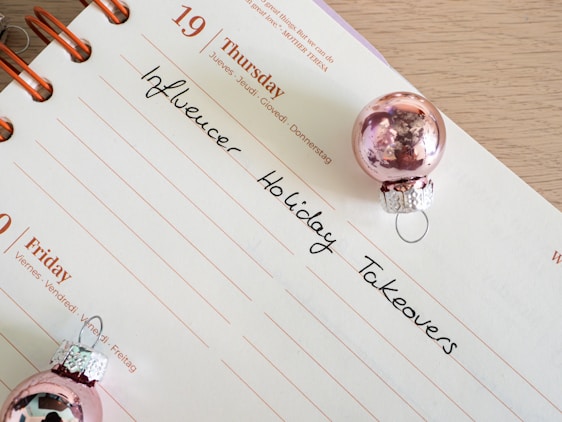 great things. But we can do
great love." MOTHER TERESA
19
Thursday
Jueves · Jeudi · Giovedì · Donnerstag
Influencer Holiday Takeovers
Friday
Viernes · Vendredi · Venerdì · Freitag